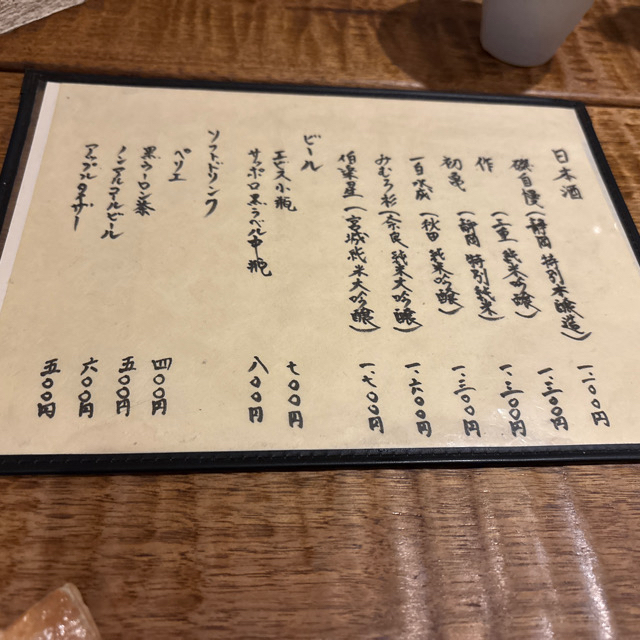 日本酒
磯自慢(静岡 特別本醸造) 一.一〇〇円
作(三重 純米吟醸) 一.三〇〇円
初亀(静岡 特別純米) 一.二〇〇円
一白水成(秋田 純米吟醸) 一.三〇〇円
みむろ杉(奈良 純米大吟醸) 一.六〇〇円
伯楽星(宮城 純米大吟醸) 一.七〇〇円
ビール
エビス小瓶 七〇〇円
サッポロ黒ラベル中瓶 八〇〇円
ソフトドリンク
ペリエ 四〇〇円
黒ウーロン茶 五〇〇円
ノンアルコールビール 六〇〇円
アップルタイザー 五〇〇円